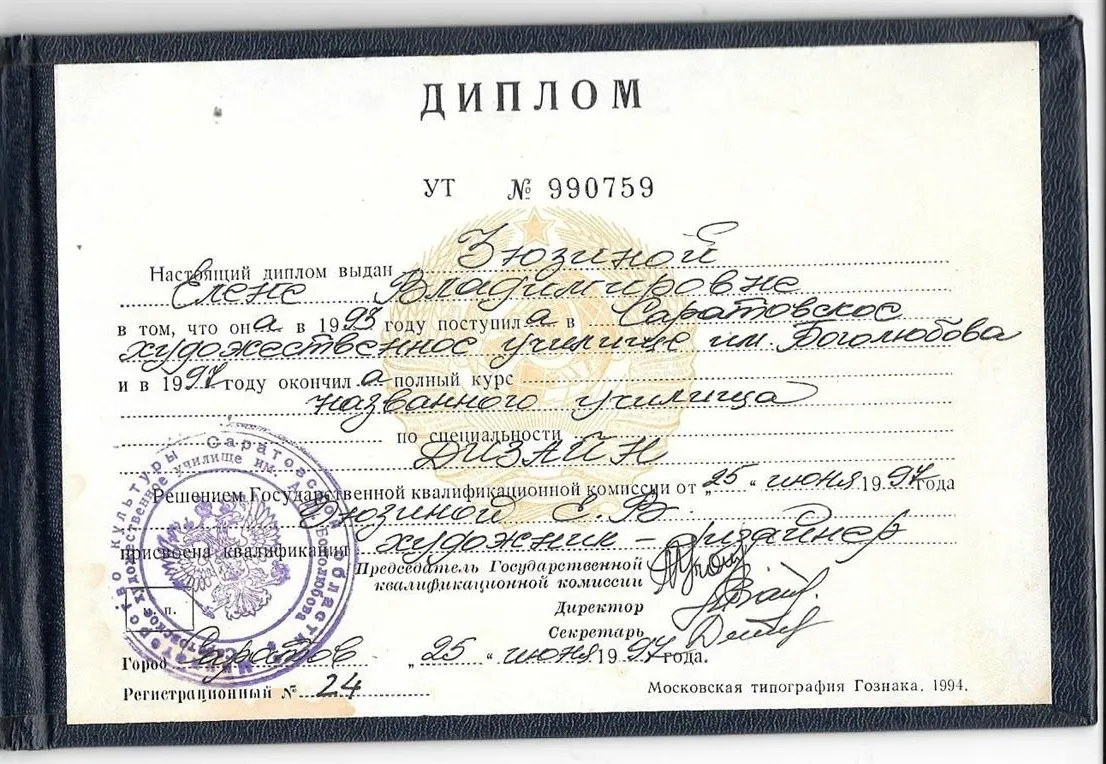 ДИПЛОМ
УТ № 990759
Настоящий диплом выдан Зюзиной
Елене Владимировне
в том, что он а в 1993 году поступил а в Саратовское
художественное училище им. Боголюбова
и в 1997 году окончил а полный курс
названного училища
по специальности
ДИЗАЙН
Решением Государственной квалификационной комиссии от „25“ июня 1997 года
Зюзиной Е. В.
присвоена квалификация художник – дизайнер
Председатель Государственной
квалификационной комиссии
Директор
Секретарь
М. п.
Город Саратов „25“ июня 1997 года.
Регистрационный № 24
Московская типография Гознака. 1994.
Министерство культуры Саратовской области
художественное училище им. Боголюбова